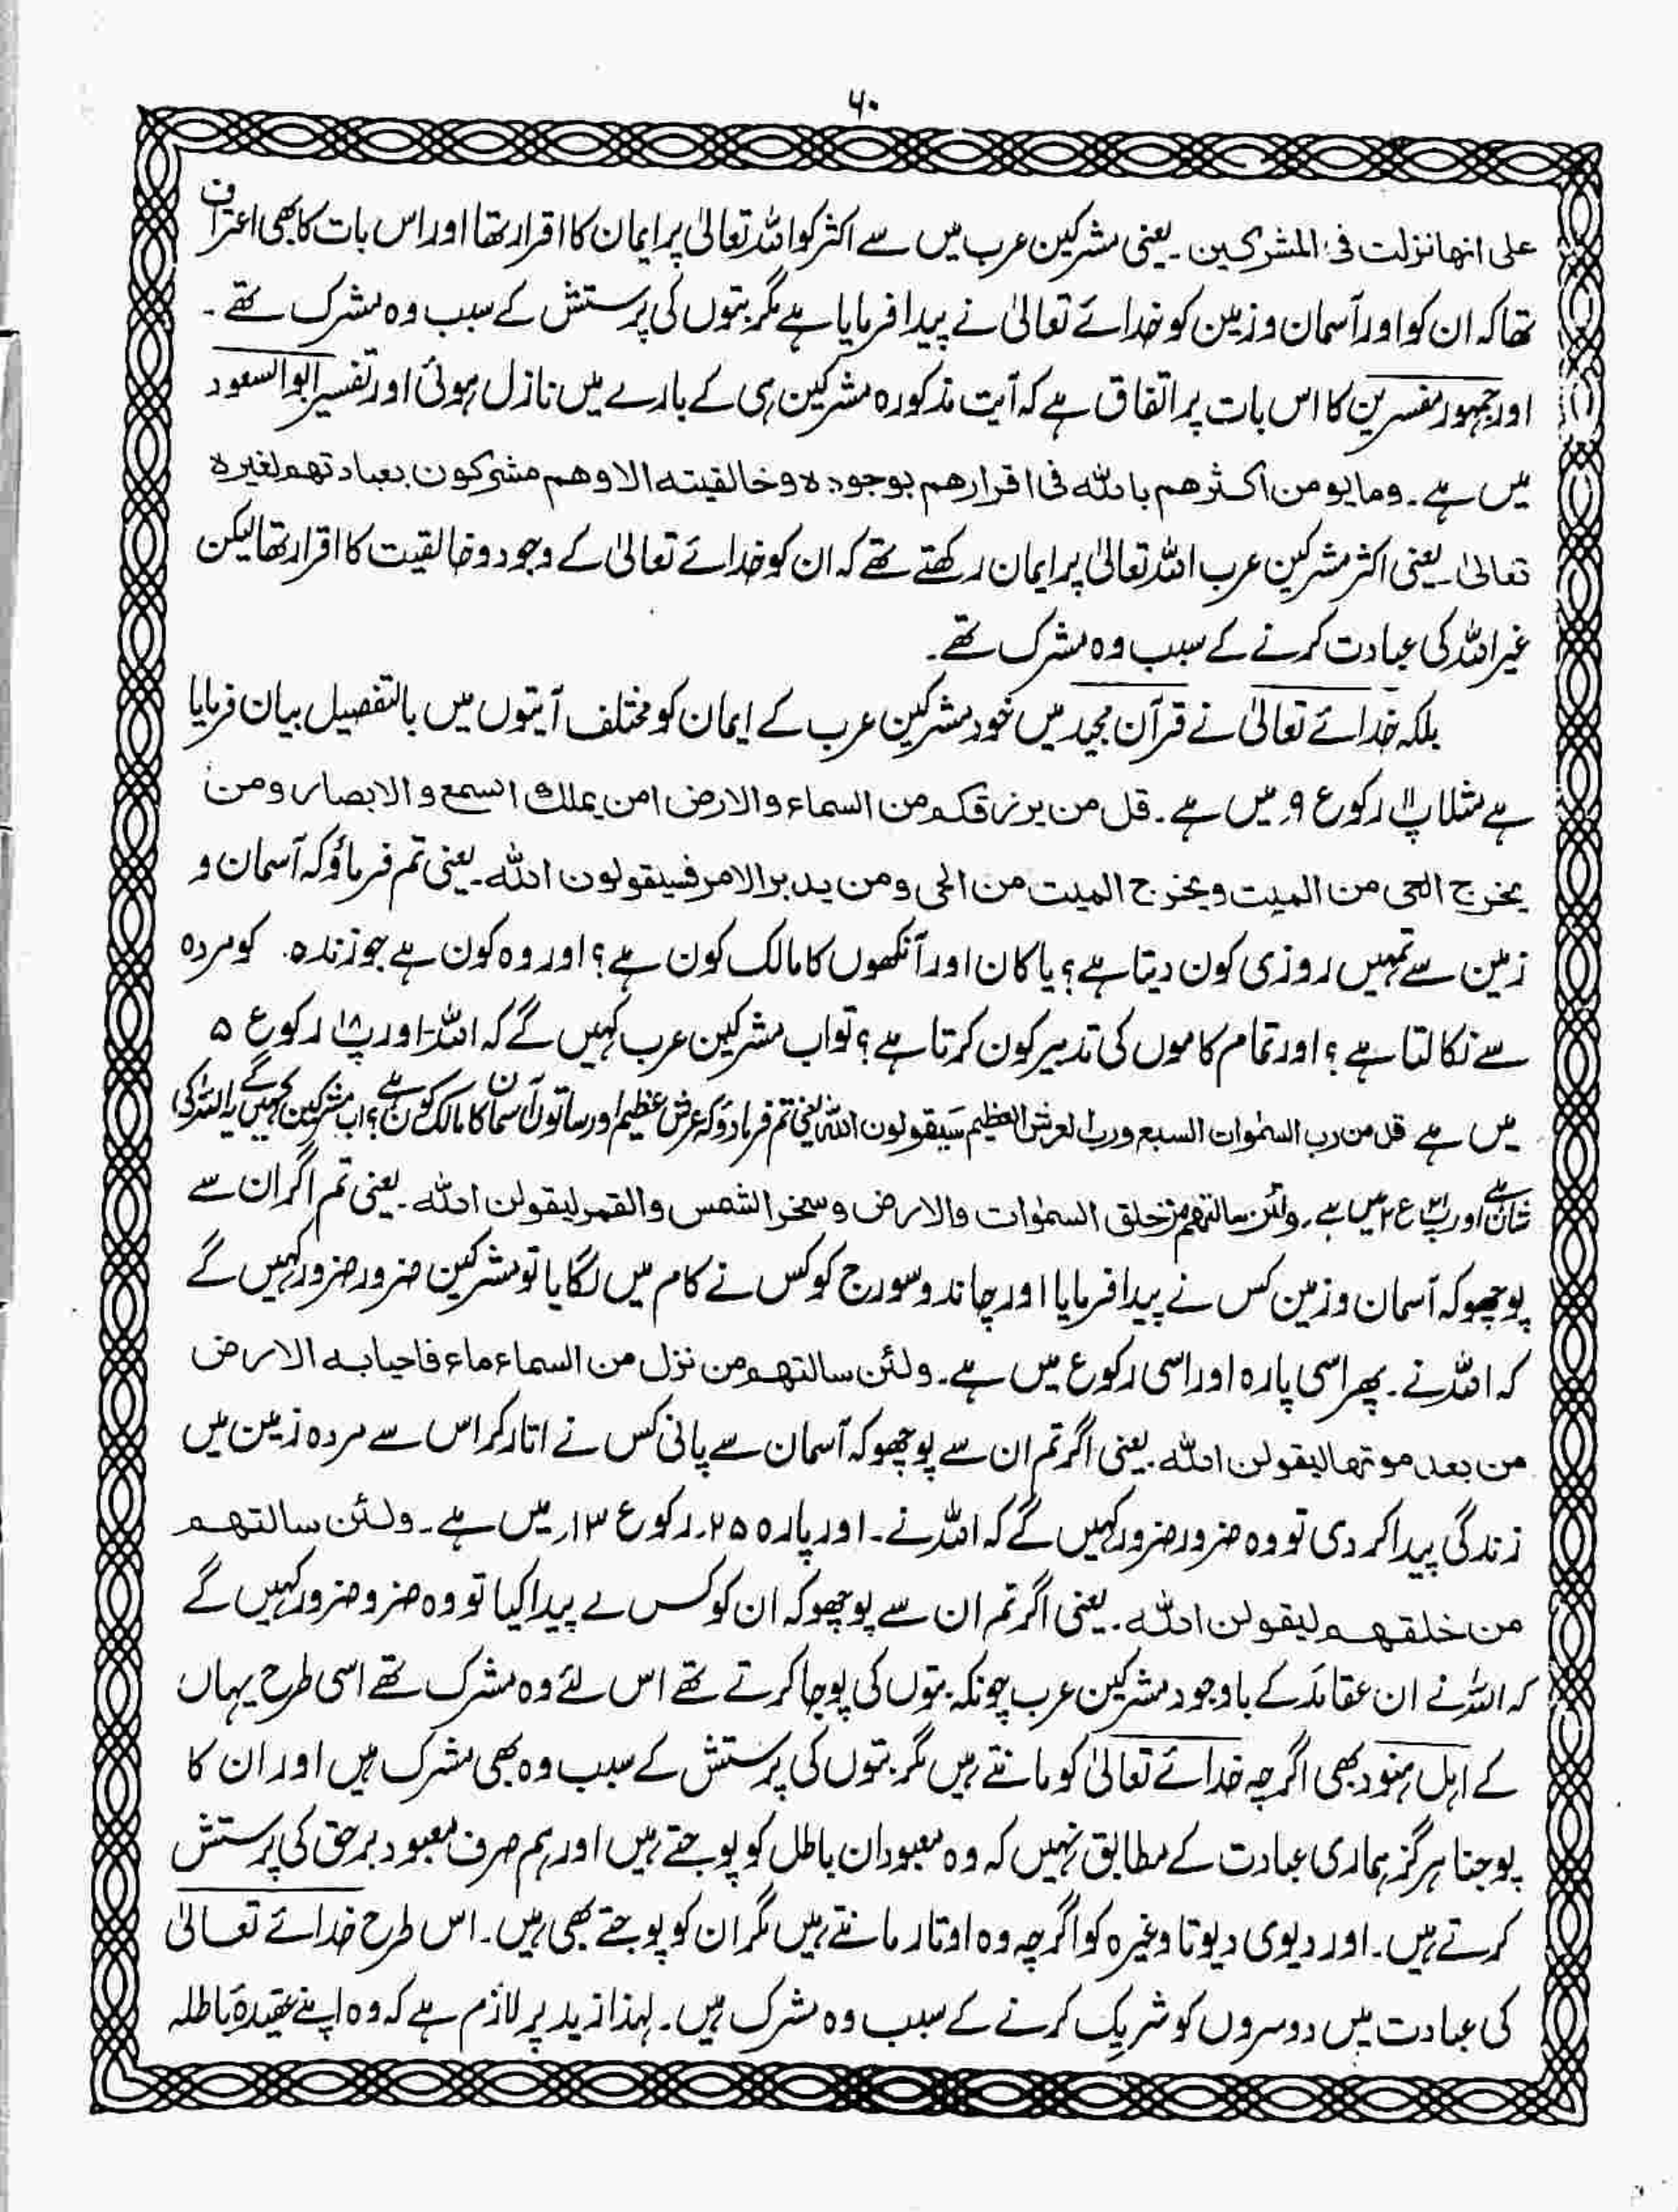 ۶۰
علی انھا نزلت فی المشرکین ۔ یعنی مشرکین عرب میں سے اکثر کو اللہ تعالیٰ پر ایمان کا اقرار تھا اور اس بات کا بھی اعتراف
تھا کہ ان کو اور آسمان و زمین کو خدائے تعالیٰ نے پیدا فرمایا ہے مگر بتوں کی پرستش کے سبب وہ مشرک تھے ۔
اور جمہور مفسرین کا اس بات پر اتفاق ہے کہ آیت مذکورہ مشرکین ہی کے بارے میں نازل ہوئی اور تفسیر ابوالسعود
میں ہے ۔ وما یومن اکثرھم باللہ فی اقرارھم بوجودہ وخالقیتہ الا وھم مشرکون بعبادتھم لغیرہ
تعالیٰ ۔ یعنی اکثر مشرکین عرب اللہ تعالیٰ پر ایمان رکھتے تھے کہ ان کو خدائے تعالیٰ کے وجود و خالقیت کا اقرار تھا لیکن
غیر اللہ کی عبادت کرنے کے سبب وہ مشرک تھے ۔
بلکہ خدائے تعالیٰ نے قرآن مجید میں خود مشرکین عرب کے ایمان کو مختلف آیتوں میں بالتفصیل بیان فرمایا
ہے مثلا پ ۱۱ رکوع ۹ میں ہے ۔ قل من یرزقکم من السماء والارض امن یملک السمع والابصار ومن
یخرج الحی من المیت ویخرج المیت من الحی ومن یدبر الامر فسیقولون اللہ ۔ یعنی تم فرماؤ کہ آسمان و
زمین سے تمہیں روزی کون دیتا ہے ؟ یا کان اور آنکھوں کا مالک کون ہے ؟ اور وہ کون ہے جو زندہ کو مردہ
سے نکالتا ہے ؟ اور تمام کاموں کی تدبیر کون کرتا ہے ؟ تو اب مشرکین عرب کہیں گے کہ اللہ ۔ اور پ ۱۸ رکوع ۵
میں ہے قل من رب السمٰوات السبع ورب العرش العظیم سیقولون اللہ یعنی تم فرمادو کہ عرش عظیم اور ساتوں آسمان کا مالک کون ہے ؟ اب مشرکین کہیں گے یہ اللہ کی
شان ہے اور پ ۲۱ ع ۲ میں ہے ۔ ولئن سالتھم من خلق السمٰوات والارض وسخر الشمس والقمر لیقولن اللہ ۔ یعنی تم اگر ان سے
پوچھو کہ آسمان و زمین کس نے پیدا فرمایا اور چاند و سورج کو کس نے کام میں لگایا تو مشرکین ضرور ضرور کہیں گے
کہ اللہ نے ۔ پھر اسی پارہ اور اسی رکوع میں ہے ۔ ولئن سالتھم من نزل من السماء ماء فاحیا بہ الارض
من بعد موتھا لیقولن اللہ ۔ یعنی اگر تم ان سے پوچھو کہ آسمان سے پانی کس نے اتار کر اس سے مردہ زمین میں
زندگی پیدا کر دی تو وہ ضرور ضرور کہیں گے کہ اللہ نے ۔ اور پارہ ۲۵ ۔ رکوع ۱۳ ر میں ہے ۔ ولئن سالتھم
من خلقھم لیقولن اللہ ۔ یعنی اگر تم ان سے پوچھو کہ ان کو کس نے پیدا کیا تو وہ ضرو ضرور کہیں گے
کہ اللہ نے ان عقائد کے باوجود مشرکین عرب چونکہ بتوں کی پوجا کرتے تھے اس لئے وہ مشرک تھے اسی طرح یہاں
کے اہل ہنود بھی اگرچہ خدائے تعالیٰ کو مانتے ہیں مگر بتوں کی پرستش کے سبب وہ بھی مشرک ہیں اور ان کا
پوجنا ہرگز ہماری عبادت کے مطابق نہیں کہ وہ معبودان باطل کو پوجتے ہیں اور ہم صرف معبود برحق کی پرستش
کرتے ہیں ۔ اور دیوی دیوتا وغیرہ کو اگرچہ وہ اوتار مانتے ہیں مگر ان کو پوجتے بھی ہیں ۔ اس طرح خدائے تعالیٰ
کی عبادت میں دوسروں کو شریک کرنے کے سبب وہ مشرک ہیں ۔ لہذا زید پر لازم ہے کہ وہ اپنے عقیدۂ باطلہ